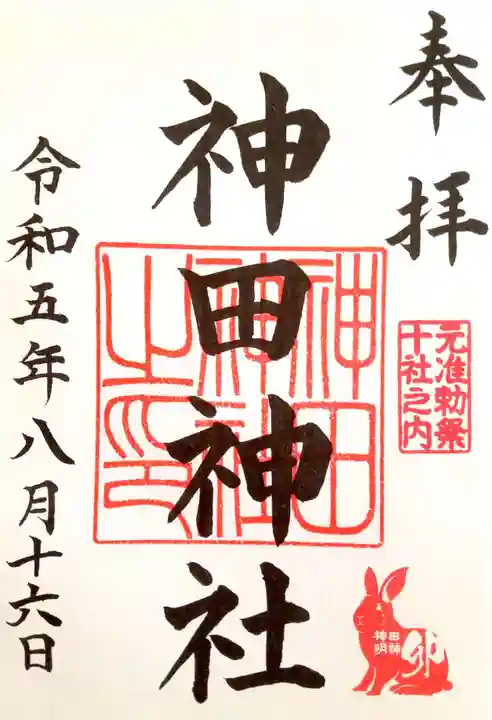 奉拝
元准勅祭
十社之内
神田神社
神田
神社
之印
神田
神明
卯
令和五年八月十六日